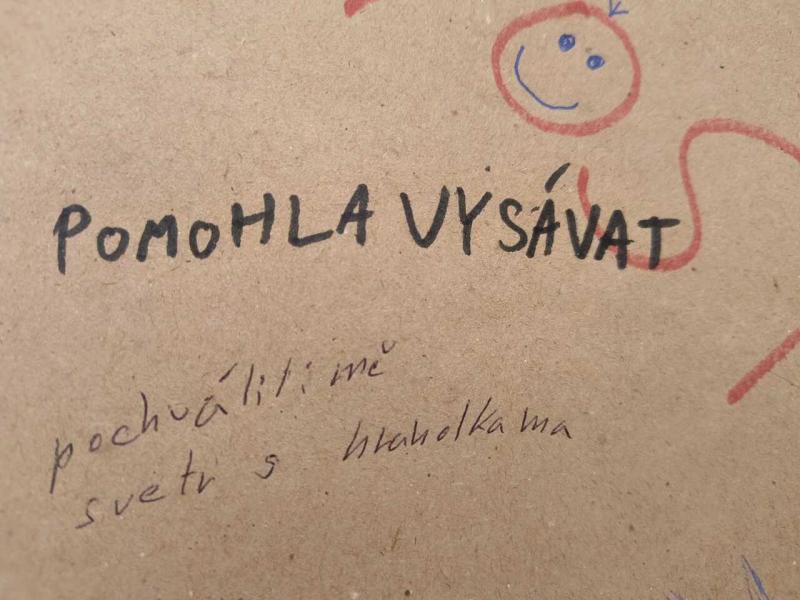 POMOHLA VYSÁVAT
pochválili mě
svetr s hraholkama